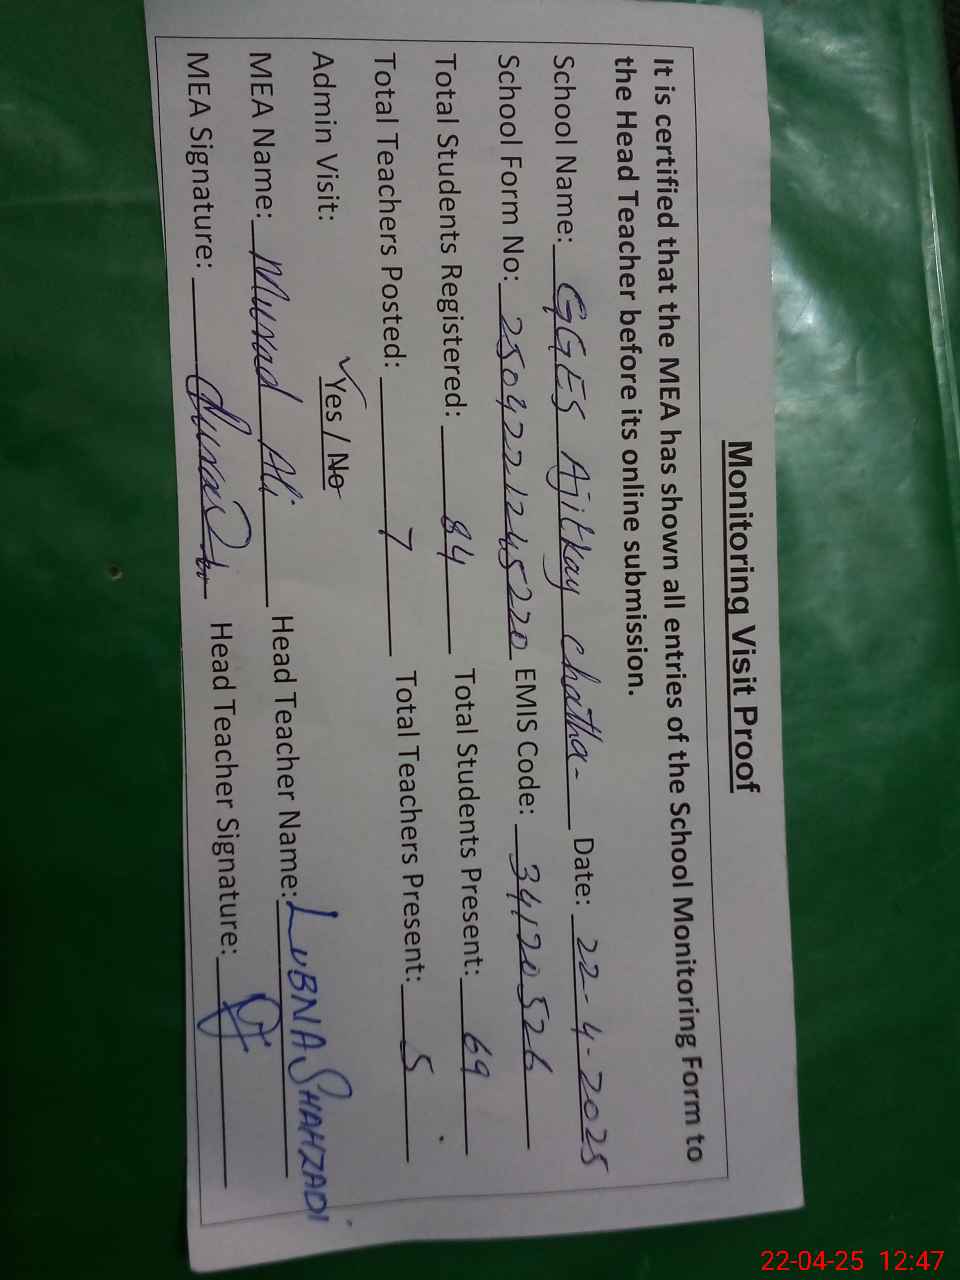 Monitoring Visit Proof
It is certified that the MEA has shown all entries of the School Monitoring Form to
the Head Teacher before its online submission.
School Name: GGES Ajitkay chattha- Date: 22-4-2025
School Form No: 2504221245220 EMIS Code: 34120526
Total Students Registered: 84 Total Students Present: 69
Total Teachers Posted: 7 Total Teachers Present: 5
Admin Visit: ✓Yes / No
MEA Name: Murad Ali Head Teacher Name: LUBNA SHAHZADI
MEA Signature: Head Teacher Signature:
22-04-25 12:47